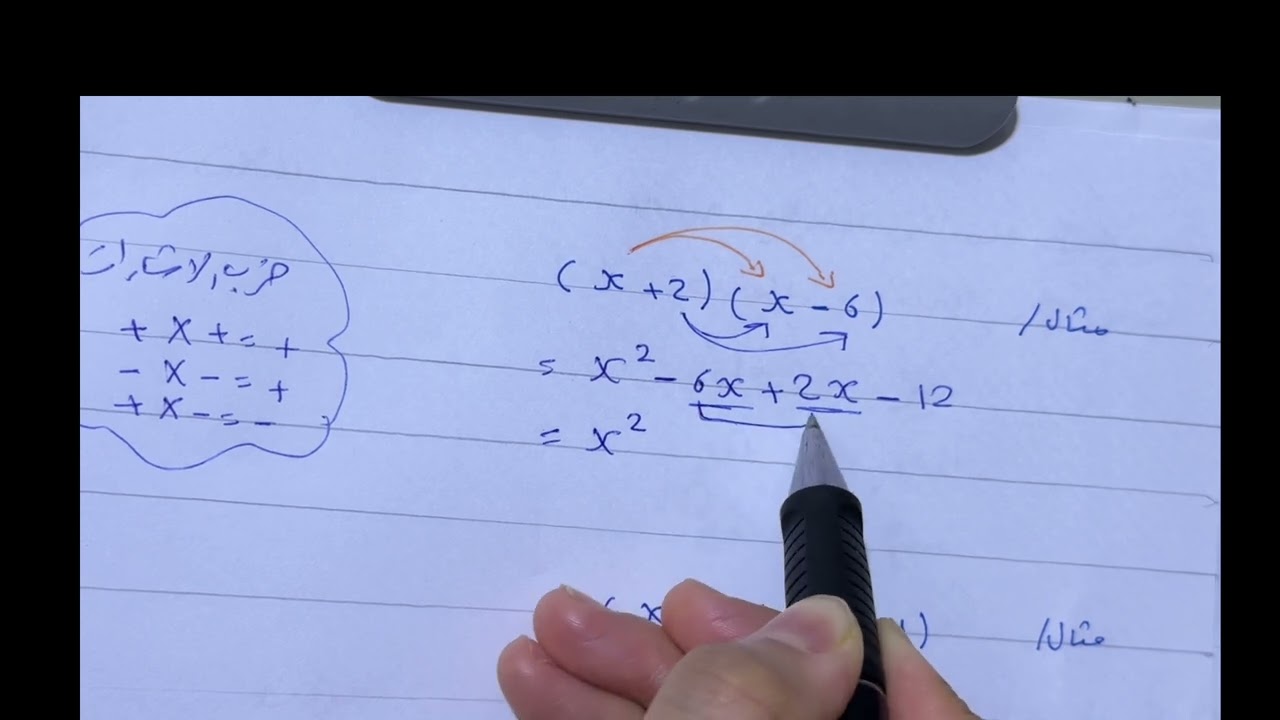 ضرب الاشارات
+ X + = +
- X - = +
+ X - = -
مثال/ (x + 2) (x - 6)
= x² - 6x + 2x - 12
= x²
مثال/